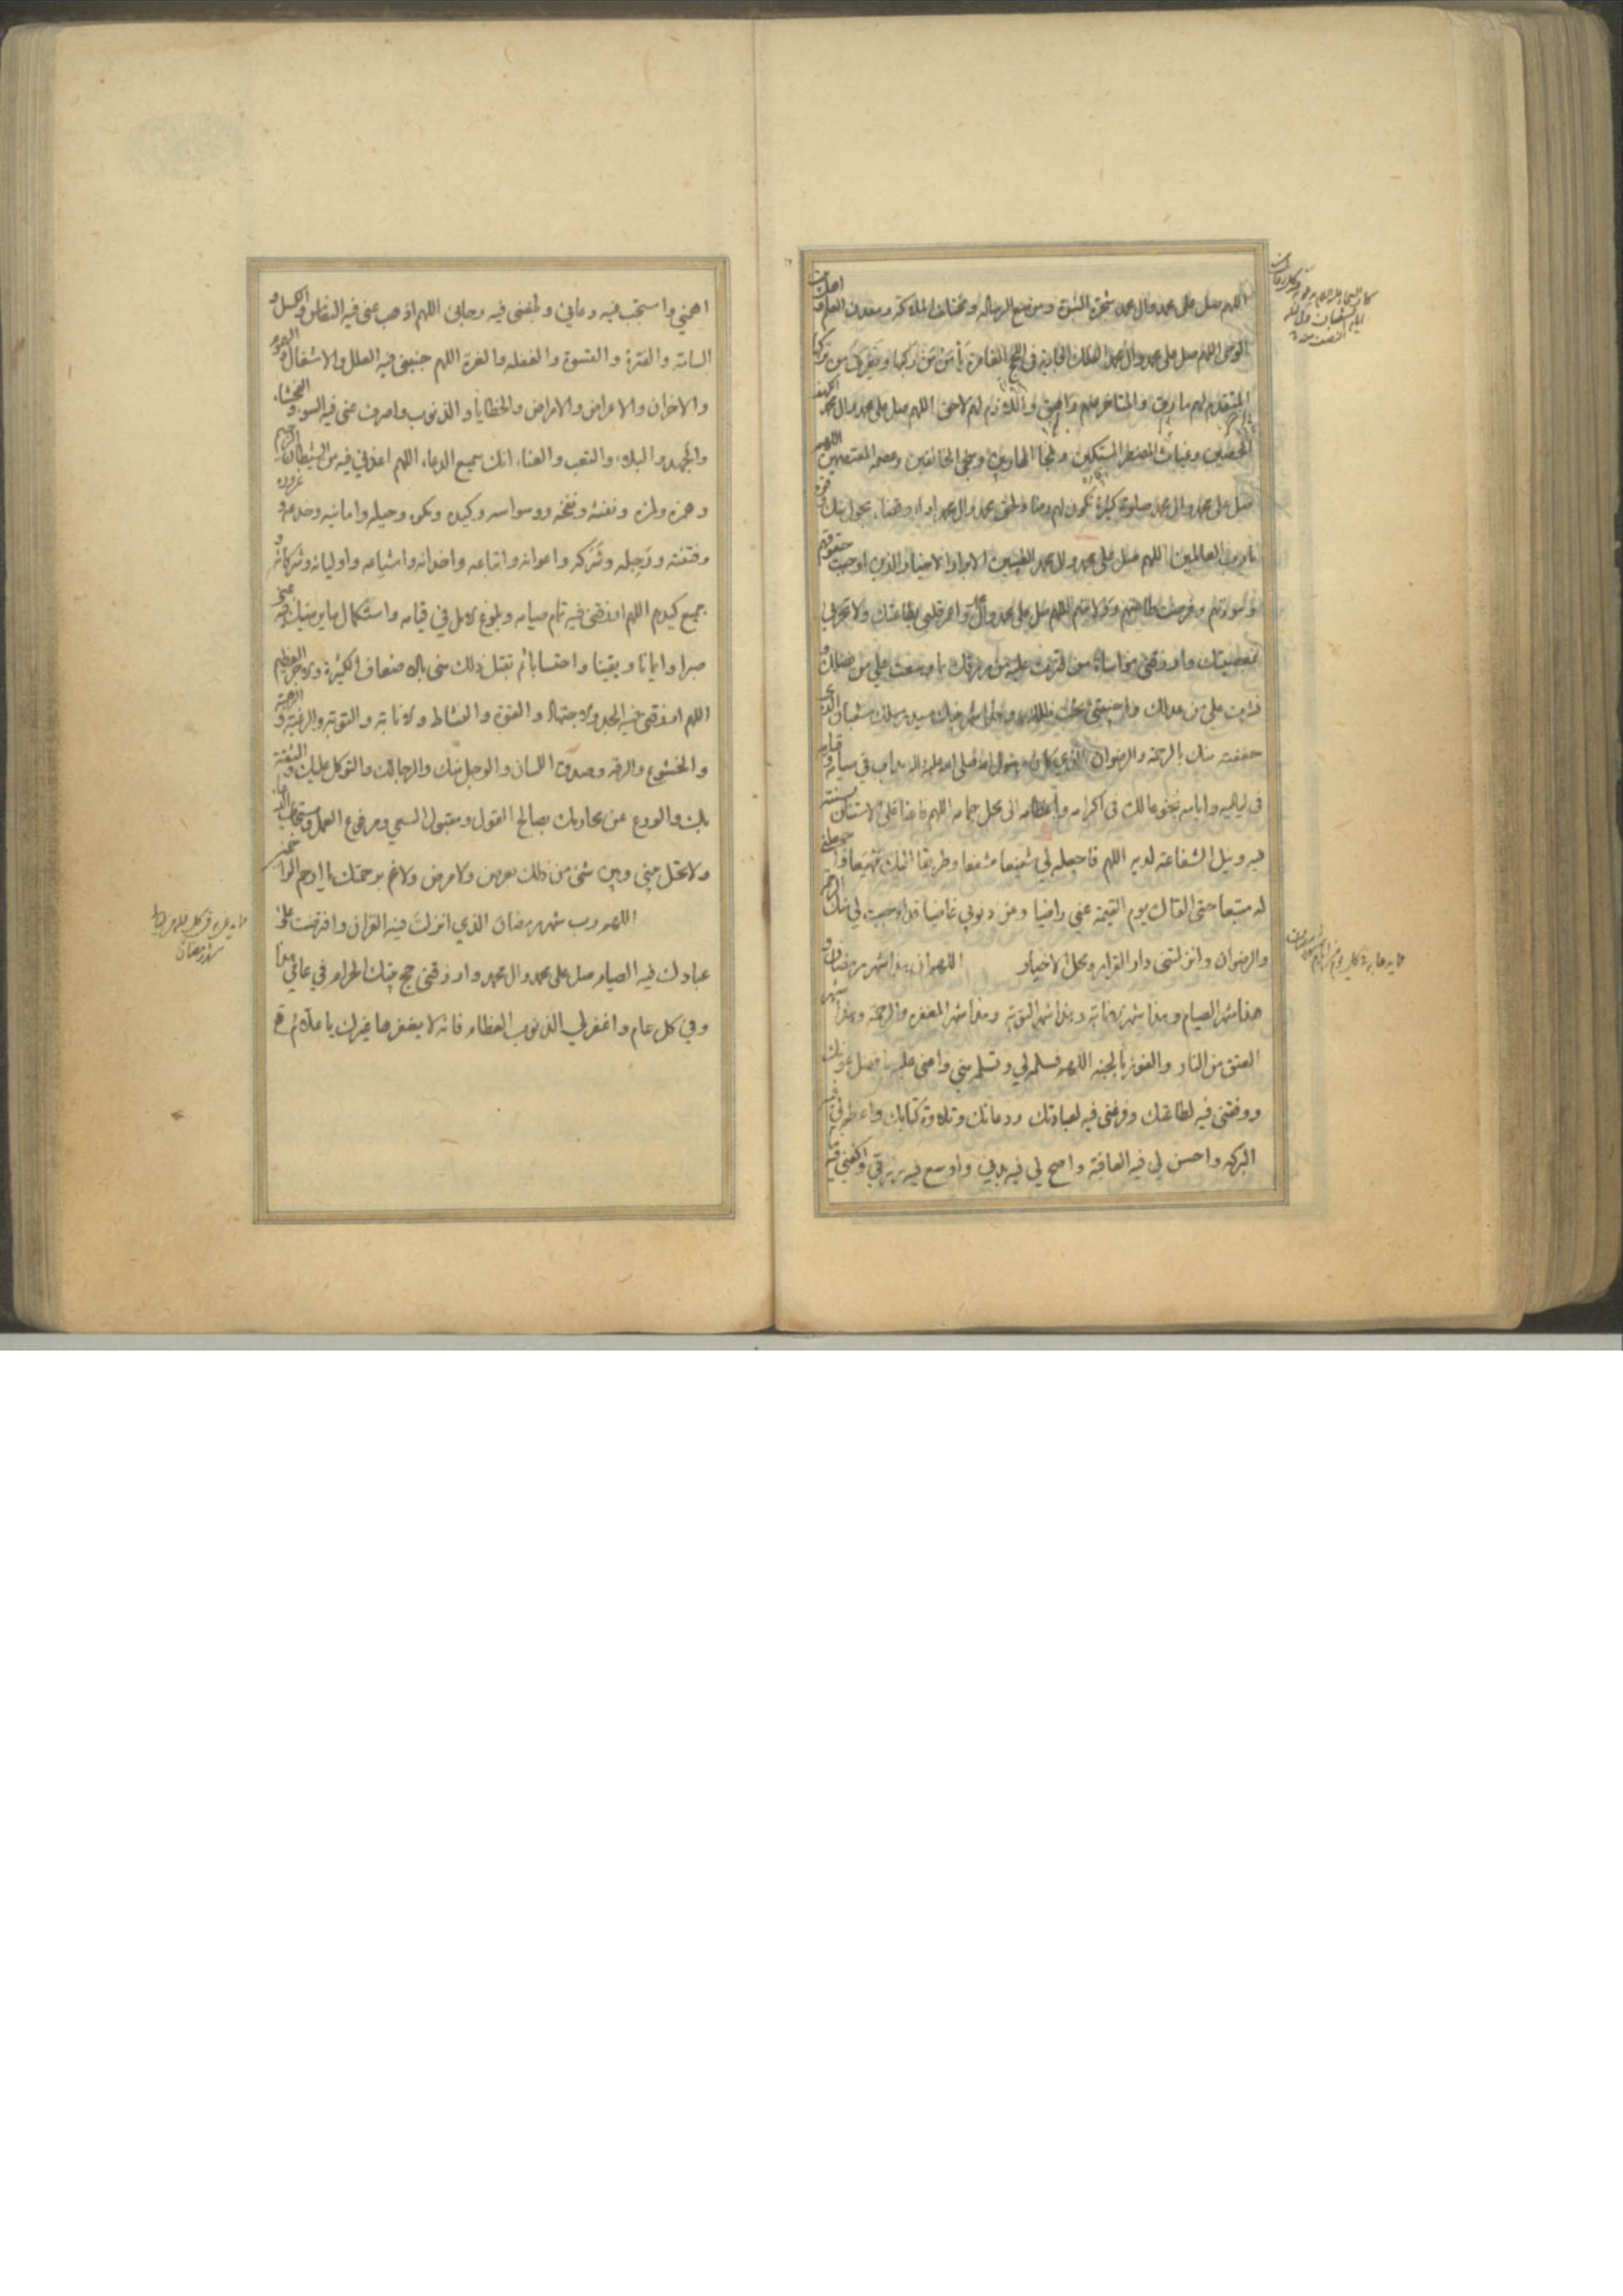 اللهم صل على محمد وال محمد شجرة النبوة وموضع الرسالة ومختلف الملائكة ومعدن العلم واهل بيت
الوحى اللهم صل على محمد وال محمد الفلك الجارية فى اللجج الغامرة يأمن من ركبها ويغرق من تركها
المتقدم لهم مارق والمتاخر عنهم زاهق واللازم لهم لاحق اللهم صل على محمد وال محمد الكهف
الحصين وغياث المضطر المستكين وملجأ الهاربين ومنجى الخائفين وعصمة المعتصمين اللهم
صل على محمد وال محمد صلوة كثيرة تكون لهم رضا ولحق محمد وال محمد اداء وقضاء بحول منك وقوة
يا رب العالمين اللهم صل على محمد وال محمد الطيبين الابرار الاخيار الذين اوجبت حقوقهم
وفرضت طاعتهم وولايتهم اللهم صل على محمد وال محمد واعمر قلبى بطاعتك ولا تخزنى
بمعصيتك وارزقنى مواساة من قترت عليه من رزقك بما وسعت على من فضلك و
نشرت على من عدلك واحييتنى تحت ظلك وهذا شهر نبيك سيد رسلك شعبان الذى
حففته منك بالرحمة والرضوان الذى كان رسول الله صلى الله عليه واله يداب فى صيامه وقيامه
فى لياليه وايامه بخوعا لك فى اكرامه واعظامه الى محل حمامه اللهم فاعنا على الاستنان بسنته
فيه ونيل الشفاعة لديه اللهم فاجعله لي شفيعا مشفعا وطريقا اليك مهيعا واجعلنى
له متبعا حتى القاك يوم القيمة عنى راضيا وعن ذنوبي غاضيا قد اوجبت لي منك الرحمة
والرضوان وانزلتنى دار القرار ومحل الاخيار اللهم ان هذا شهر رمضان و
هذا شهر الصيام وهذا شهر الانابة وهذا شهر التوبة وهذا شهر المغفرة والرحمة وهذا شهر
العتق من النار والفوز بالجنة اللهم فسلمه لي وتسلمه مني واعنى عليه بافضل عونك
ووفقنى فيه لطاعتك وفرغنى فيه لعبادتك ودعائك وتلاوة كتابك واعظم لي فيه
البركة واحسن لي فيه العافية واصح لي فيه بدني واوسع فيه رزقي واكفني فيه ما
اهمني واستجب فيه دعائي وبلغنى فيه رجائى اللهم اذهب عنى فيه النعاس والكسل و
السامة والفترة والقسوة والغفلة والغرة اللهم جنبنى فيه العلل والاشغال والهموم
والاحزان والاعراض والامراض والخطايا والذنوب واصرف عنى فيه السوء والفحشاء
والجهد والبلاء والتعب والعناء انك سميع الدعاء اللهم اعذنى فيه من الشيطان الرجيم
وهمزه ولمزه ونفثه ونفخه ووسواسه وكيده ومكره وحيله وامانيه وخدعه وغروره
وفتنته ورجله وشركه واعوانه واتباعه واخدانه واشياعه واوليائه وشركائه و
جميع كيدهم اللهم ارزقنى فيه تمام صيامه وبلوغ الامل في قيامه واستكمال ما يرضيك فيه عنى
صبرا وايمانا ويقينا واحتسابا ثم تقبل ذلك منى بالاضعاف الكثيرة والاجر العظيم
اللهم ارزقنى فيه الجد والاجتهاد والقوة والنشاط والانابة والتوبة والرغبة والرهبة
والخشوع والرقة وصدق اللسان والوجل منك والرجا لك والتوكل عليك والثقة
بك والورع عن محارمك بصالح القول ومقبول السعي ومرفوع العمل ومستجاب الدعاء
ولا تحل بيني وبين شئ من ذلك بعرض ولا مرض ولا غم برحمتك يا ارحم الراحمين
اللهم رب شهر رمضان الذي انزلت فيه القران وافترضت على
عبادك فيه الصيام صل على محمد وال محمد وارزقنى حج بيتك الحرام في عامي هذا
وفي كل عام واغفر لي الذنوب العظام فانه لا يغفرها غيرك يا علام
شهر رمضان